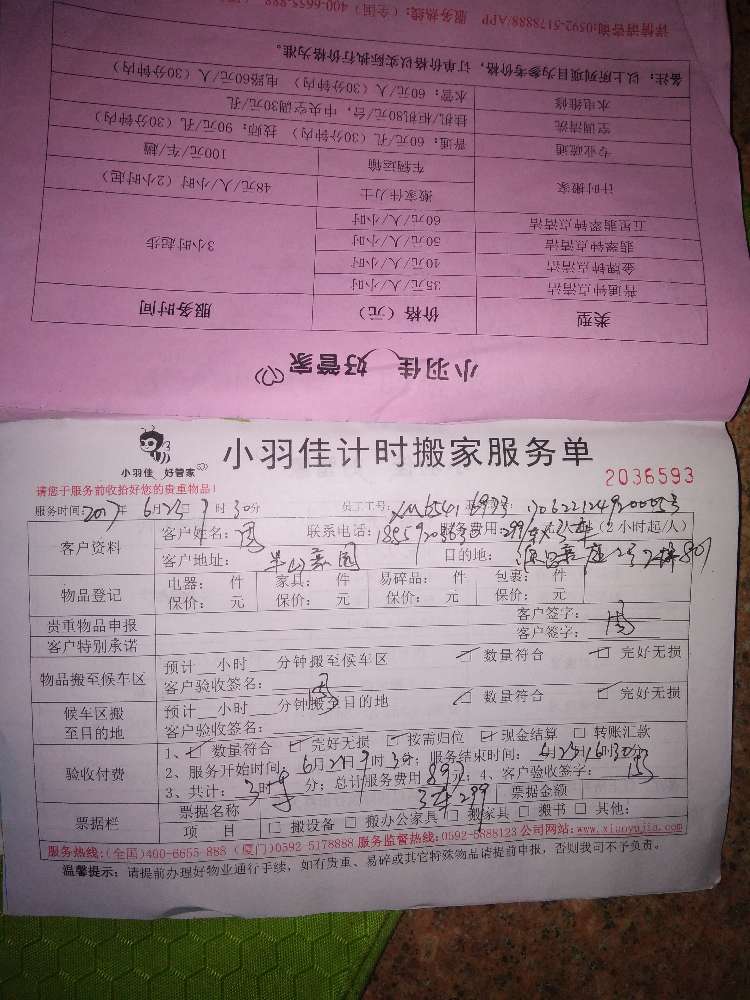 详情请咨询:0592-5178888/APP 服务热线:(全国)400-6655-888
备注:以上所列项目为参考价格,订单价格以实际执行价格为准。
水电维修 水管:60元/人(30分钟内) 电路60元/人(30分钟内)
空调清洗 挂机/柜机80元/台,中央空调30元/孔
专业疏通 普通:60元/孔(30分钟内) 技师:90元/孔(30分钟内)
计时搬家 车辆运输 100元/车/趟
搬家佳力士 48元/人/小时(2小时起)
五星翡翠钟点清洁 60元/人/小时
翡翠钟点清洁 50元/人/小时 3小时起步
金牌钟点清洁 40元/人/小时
普通钟点清洁 35元/人/小时
类型 价格(元) 服务时间
小羽佳 好管家
小羽佳 好管家
小羽佳计时搬家服务单
2036593
请您于服务前收拾好您的贵重物品!
服务时间: 2017年 6月23日 9时30分 员工工号:
客户资料 客户姓名: 周 联系电话: 服务费用: 299/车 (2小时起/人)
客户地址: 半山 目的地:
物品登记 电器: 件 家具: 件 易碎品: 件 包裹: 件
保价: 元 保价: 元 保价: 元 保价: 元
贵重物品申报 客户签字: 周
客户特别承诺 客户签字:
物品搬至候车区 预计 小时 分钟搬至候车区 数量符合 完好无损
客户验收签名: 周
候车区搬至目的地 预计 小时 分钟搬至目的地 数量符合 完好无损
客户验收签名:
验收付费 1、 数量符合 完好无损 按需归位 现金结算 转账汇款
2、服务开始时间: 6月2日9时3分; 服务结束时间: 6月23日16时30分
3、共计: 3 时 分; 总计服务费用 897元; 4、客户验收签字: 周
票据栏 票据名称 3车299 票据金额
项 目 搬设备 搬办公家具 搬家具 搬书 其他:
服务热线:(全国)400-6655-888 (厦门)0592 5178888 服务监督热线:0592-5888123 公司网站:www.xiaoyujia.com
温馨提示:请提前办理好物业通行手续,如有贵重、易碎或其它特殊物品请提前申报,否则我司不予负责。